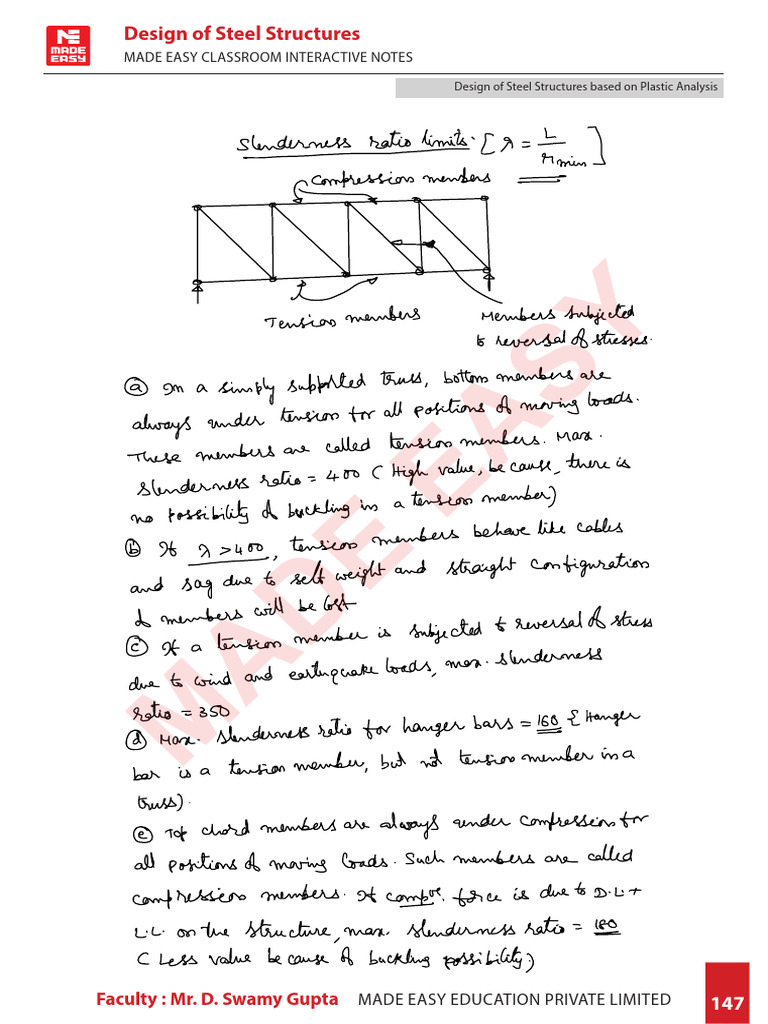 MADE EASY
Design of Steel Structures
MADE EASY CLASSROOM INTERACTIVE NOTES
Design of Steel Structures based on Plastic Analysis
Slenderness ratio limits. [λ = L/rmin]
Compression members
Tension members
Members subjected
to reversal of stresses.
(a) In a simply supported truss, bottom members are
always under tension for all positions of moving loads.
These members are called tension members. Max.
slenderness ratio = 400 ( High value, because, there is
no possibility of buckling in a tension member)
(b) If λ > 400, tension members behave like cables
and sag due to self weight and straight configuration
of members will be lost
(c) If a tension member is subjected to reversal of stress
due to wind and earthquake loads, max. slenderness
ratio = 350
(d) Max. slenderness ratio for hanger bars = 160 { Hanger
bar is a tension member, but not tension member in a
truss).
(e) Top chord members are always under compression for
all positions of moving loads. Such members are called
compression members. If compve. force is due to D.L +
L.L. on the structure, max. slenderness ratio = 180
( Less value because of buckling possibility.)
MADE EASY
Faculty : Mr. D. Swamy Gupta MADE EASY EDUCATION PRIVATE LIMITED
147